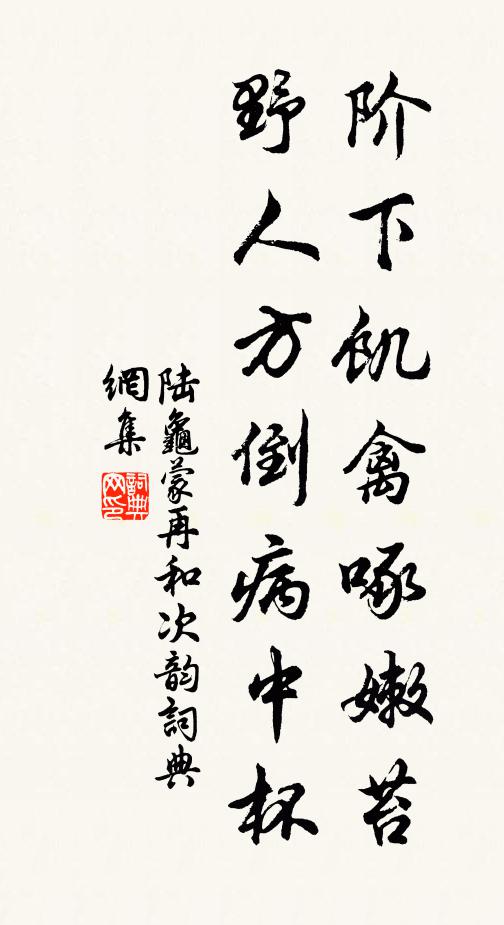 阶下饥禽啄嫩苔
野人方倒病中杯
陆龜蒙再和次韵詞典
網集
詞典网印